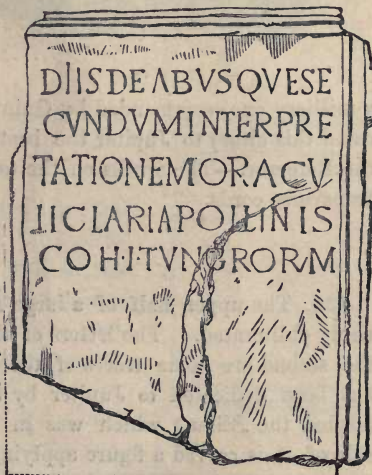 DIISDEABVSQVESE
CVNDVMINTERPRE
TATIONEMORACV
LICLARIAPOLLINIS
COH·I·TVNGRORVM